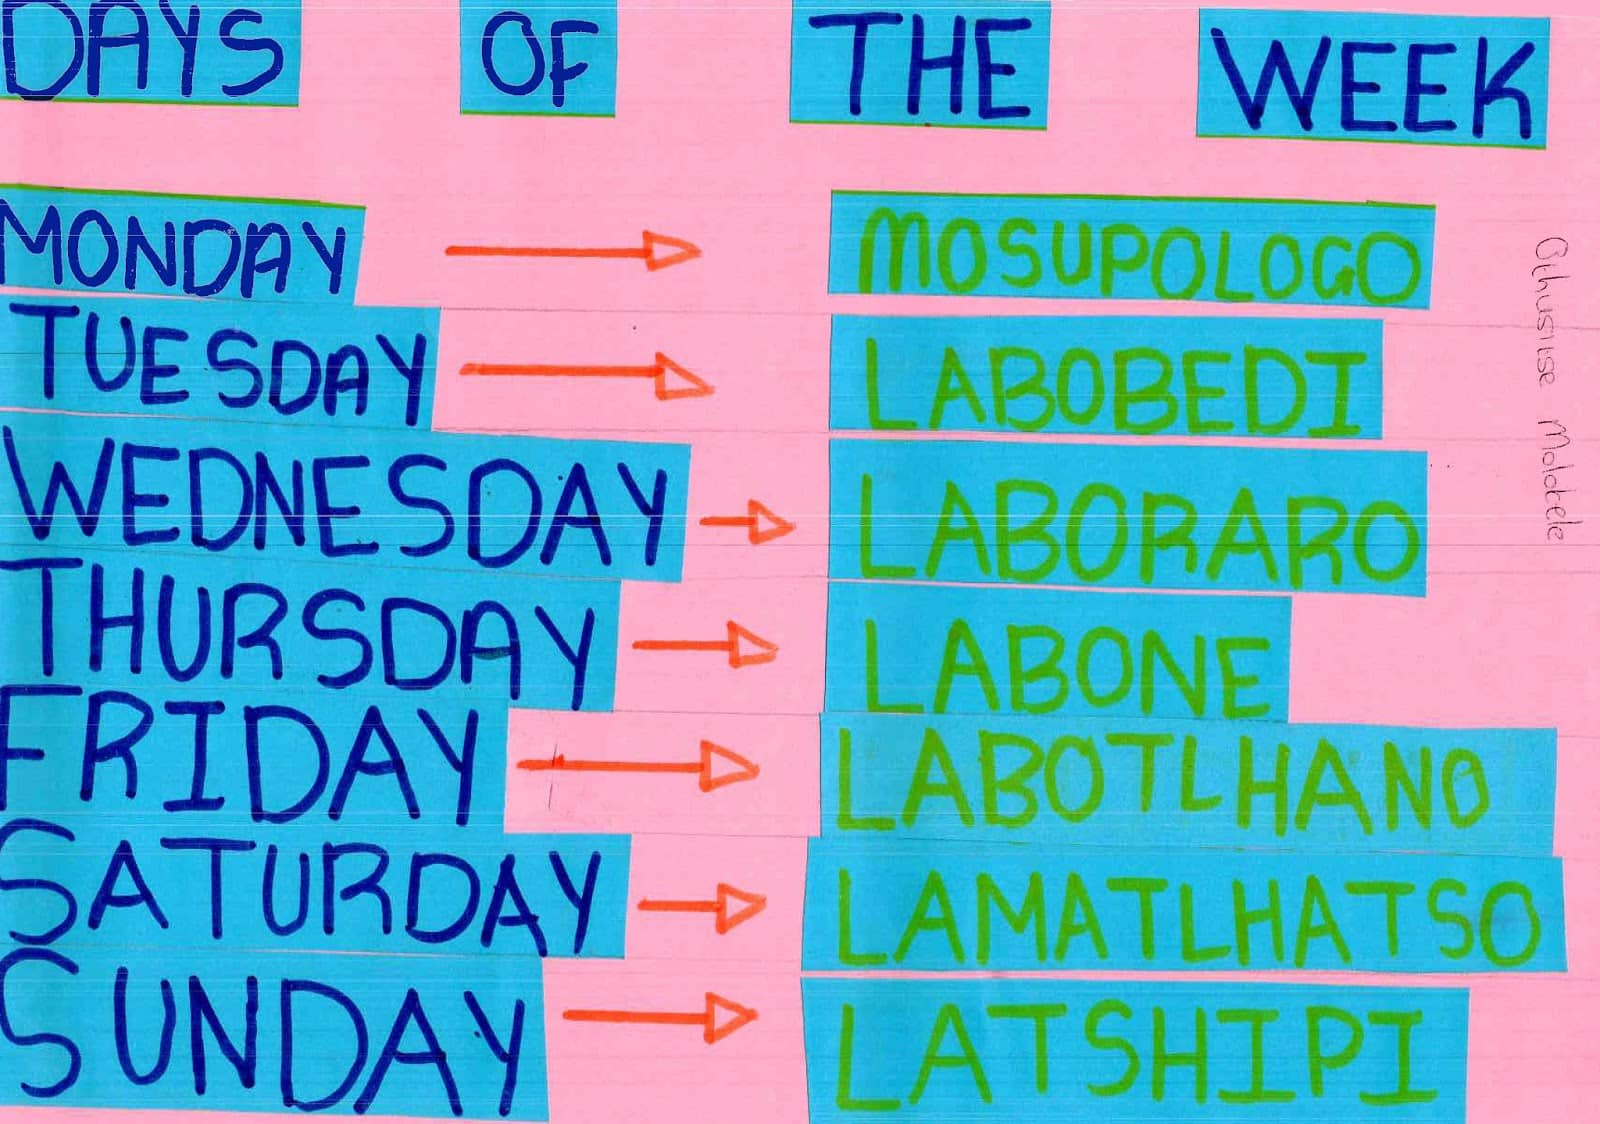 DAYS OF THE WEEK
MONDAY → MOSUPOLOGO
TUESDAY → LABOBEDI
WEDNESDAY → LABORARO
THURSDAY → LABONE
FRIDAY → LABOTLHANO
SATURDAY → LAMATLHATSO
SUNDAY → LATSHIPI